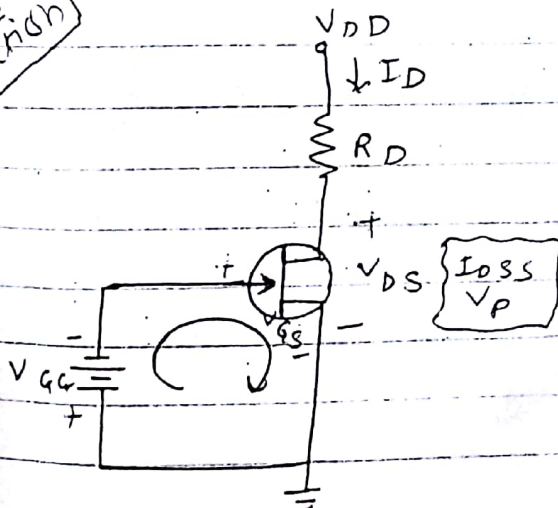 VDD
↓ ID
RD
+
+
VDS
IDSS
VP
VGS
-
-
-
VGG
+